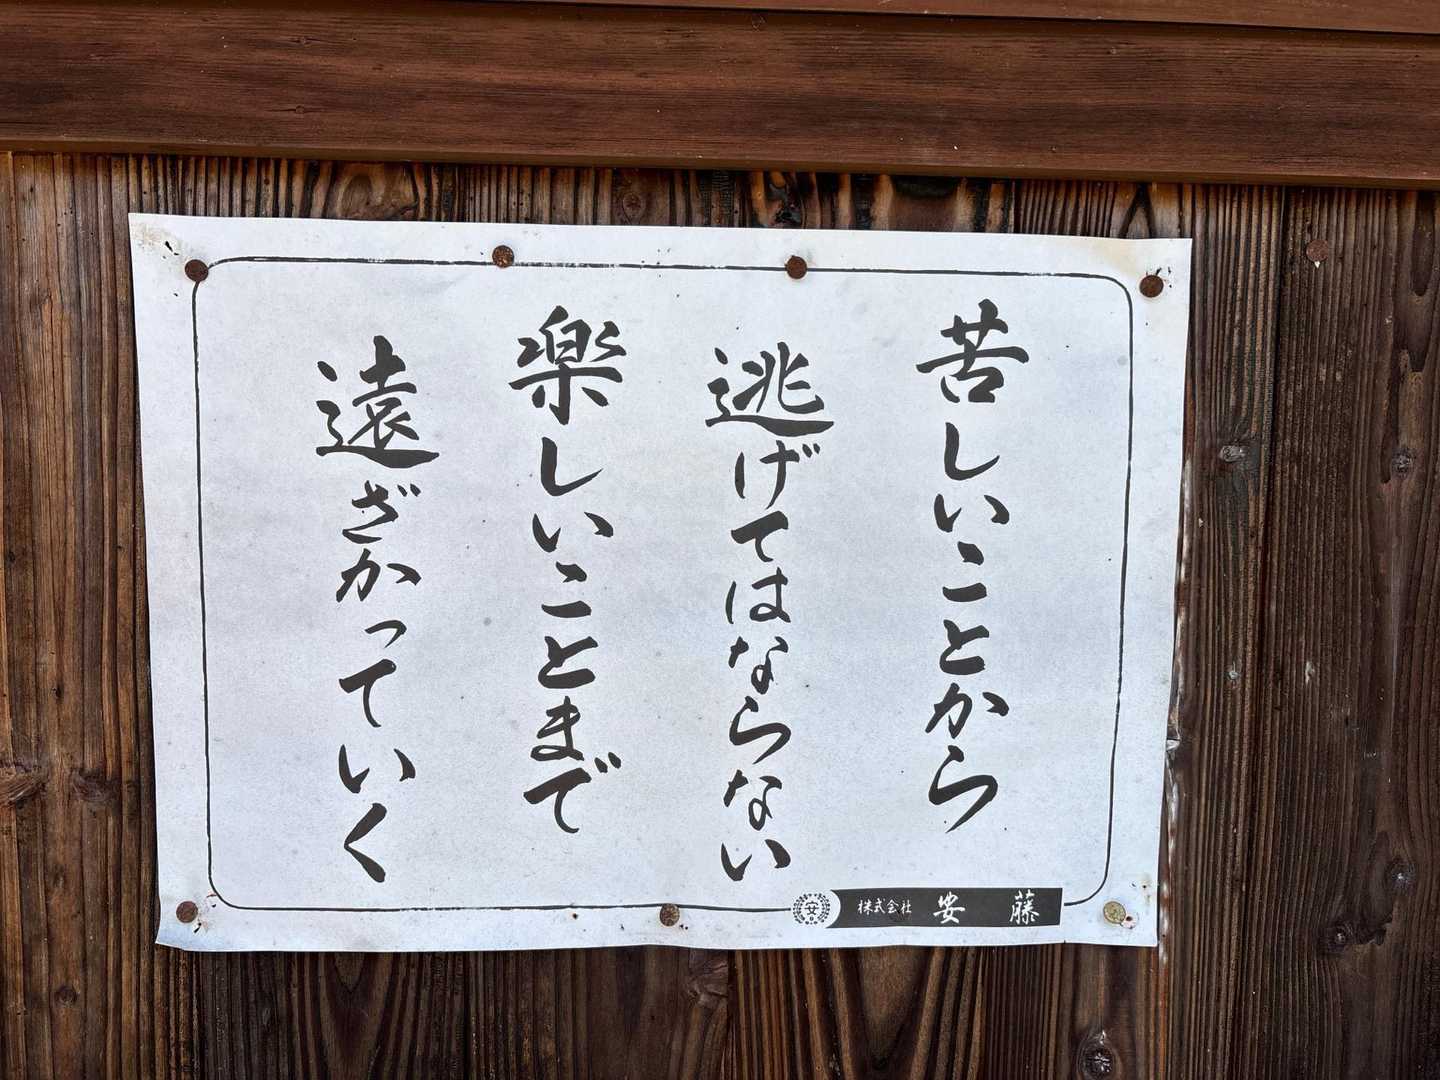 苦しいことから
逃げてはならない
楽しいことまで
遠ざかっていく
安 株式会社 安藤